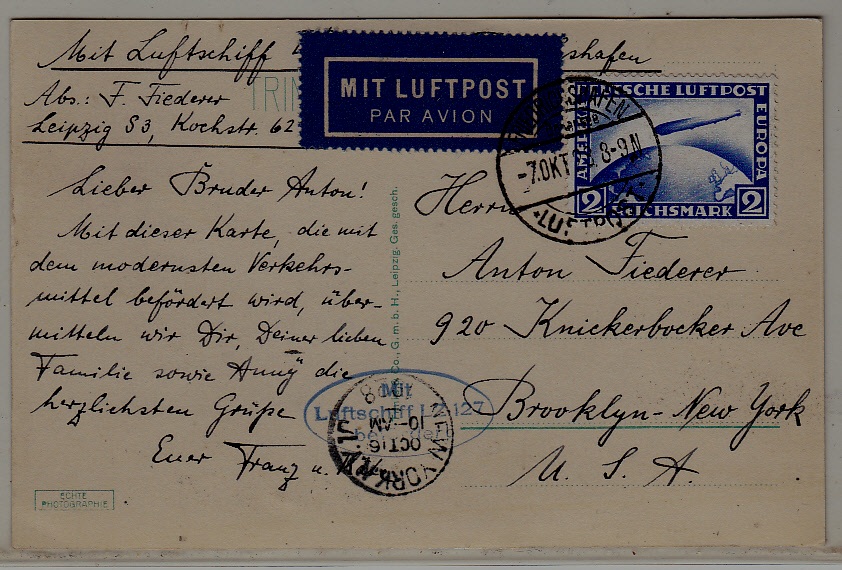 Mit Luftschiff
shafen
Abs.: F. Fiederer
Leipzig S3, Kochstr. 62
MIT LUFTPOST
PAR AVION
-7.OKT 8-9N
LUFTPOST
DEUTSCHE LUFTPOST
EUROPA
2 REICHSMARK 2
Lieber Bruder Anton!
Mit dieser Karte, die mit
dem modernsten Verkehrs-
mittel befördert wird, über-
mitteln wir Dir, Deiner lieben
Familie sowie Anny die
herzlichsten Grüße
Euer Franz u.
Co., G.m.b.H., Leipzig. Ges. gesch.
Herrn
Anton Fiederer
920 Knickerbocker Ave
Brooklyn-New York
U. S. A.
Mit
Luftschiff LZ 127
NEW YORK, N.Y.
OCT 16
10-AM
ECHTE
PHOTOGRAPHIE